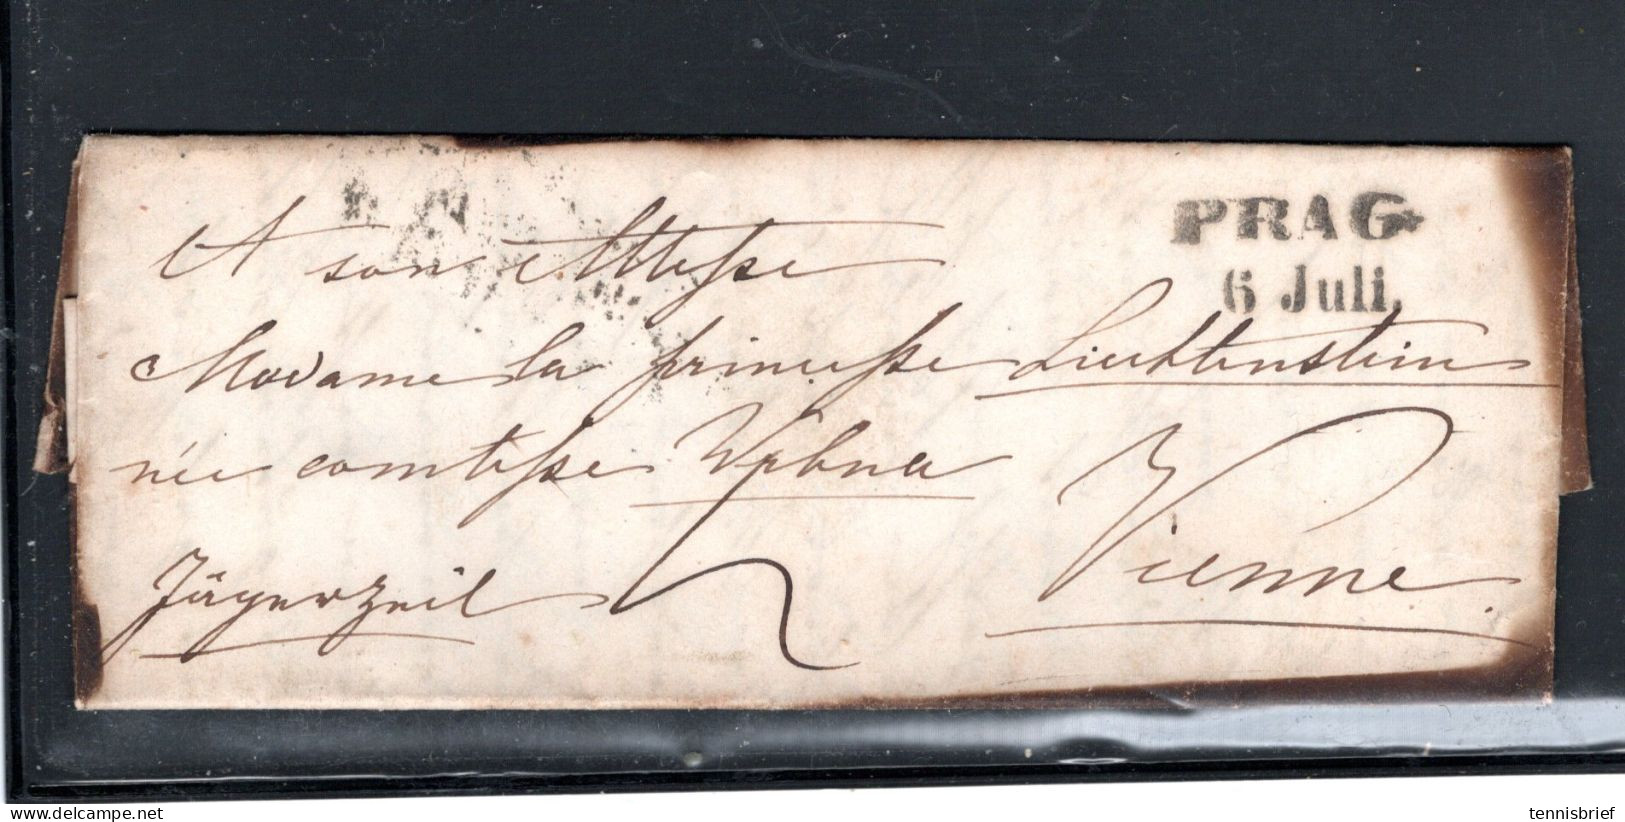 PRAG
6 Juli.
A son Altesse
Madame la princesse Liechtenstein
née comtesse Wrbna
Vienne.
Jägerzeil
delcampe.net
tennisbrief